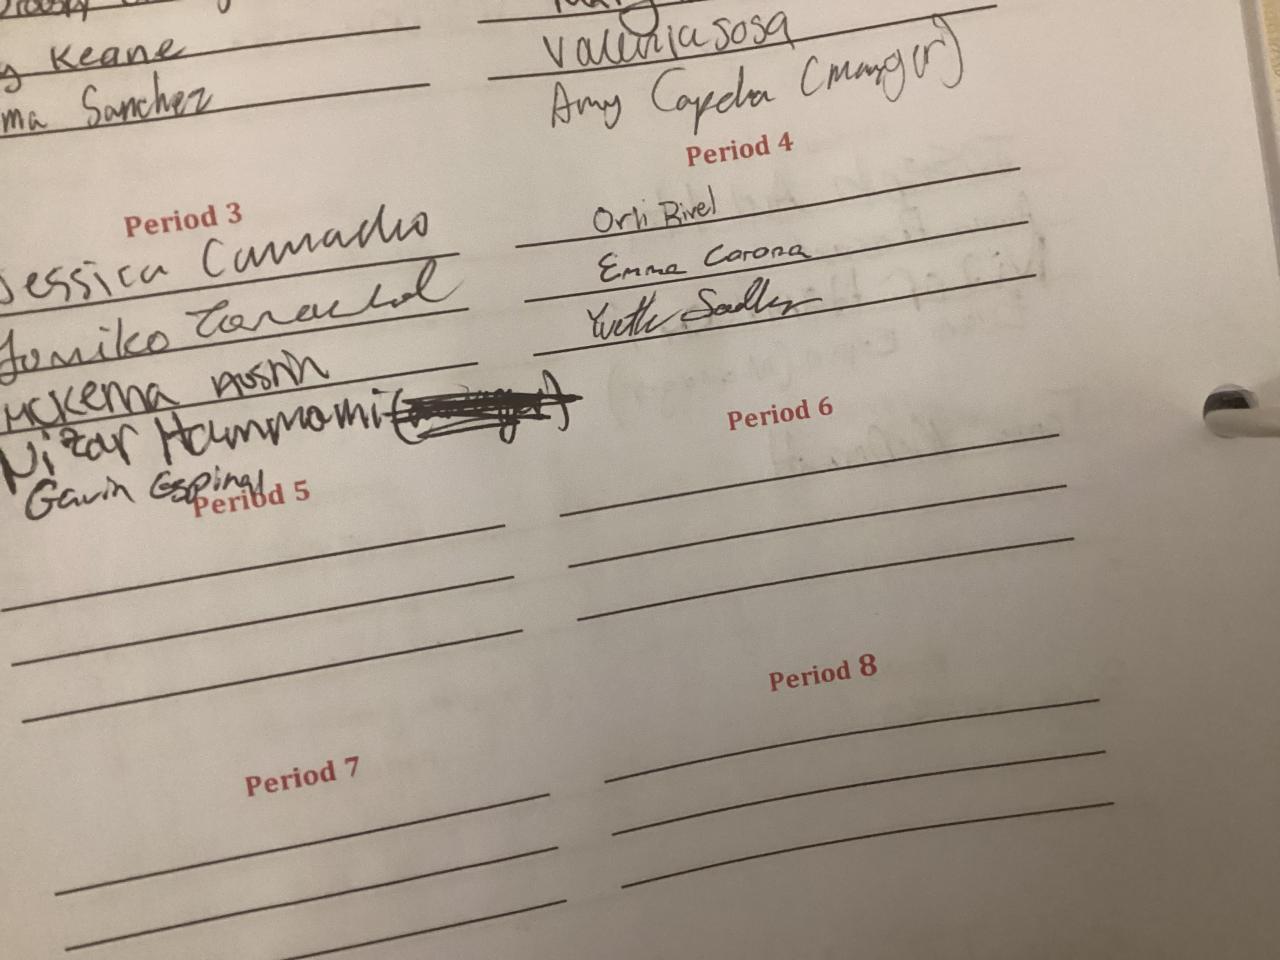 Keane
Sanchez
Valeria Sosa
Amy (manger)
Period 3
Jessica Camacho
Mckenna Austin
Nizar Hammami
Gavin Espinal
Period 4
Orli Rivel
Emma Corona
Yvette Sadler
Period 5
Period 6
Period 7
Period 8